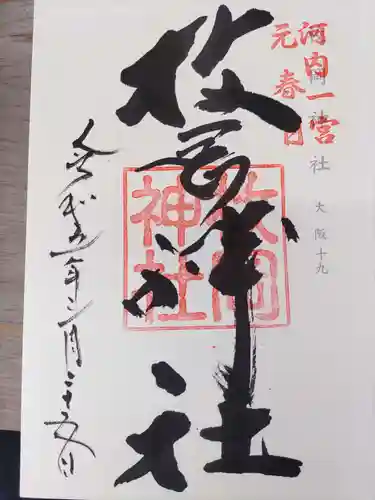 河内一宮
元春日
社
大阪十九
枚岡神社
枚岡
神社
令和五年二月二十五日